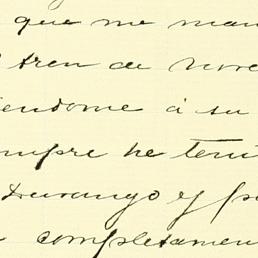 que me man
tren de nore
endome á su
mpre he teni
Durango y p
completamen